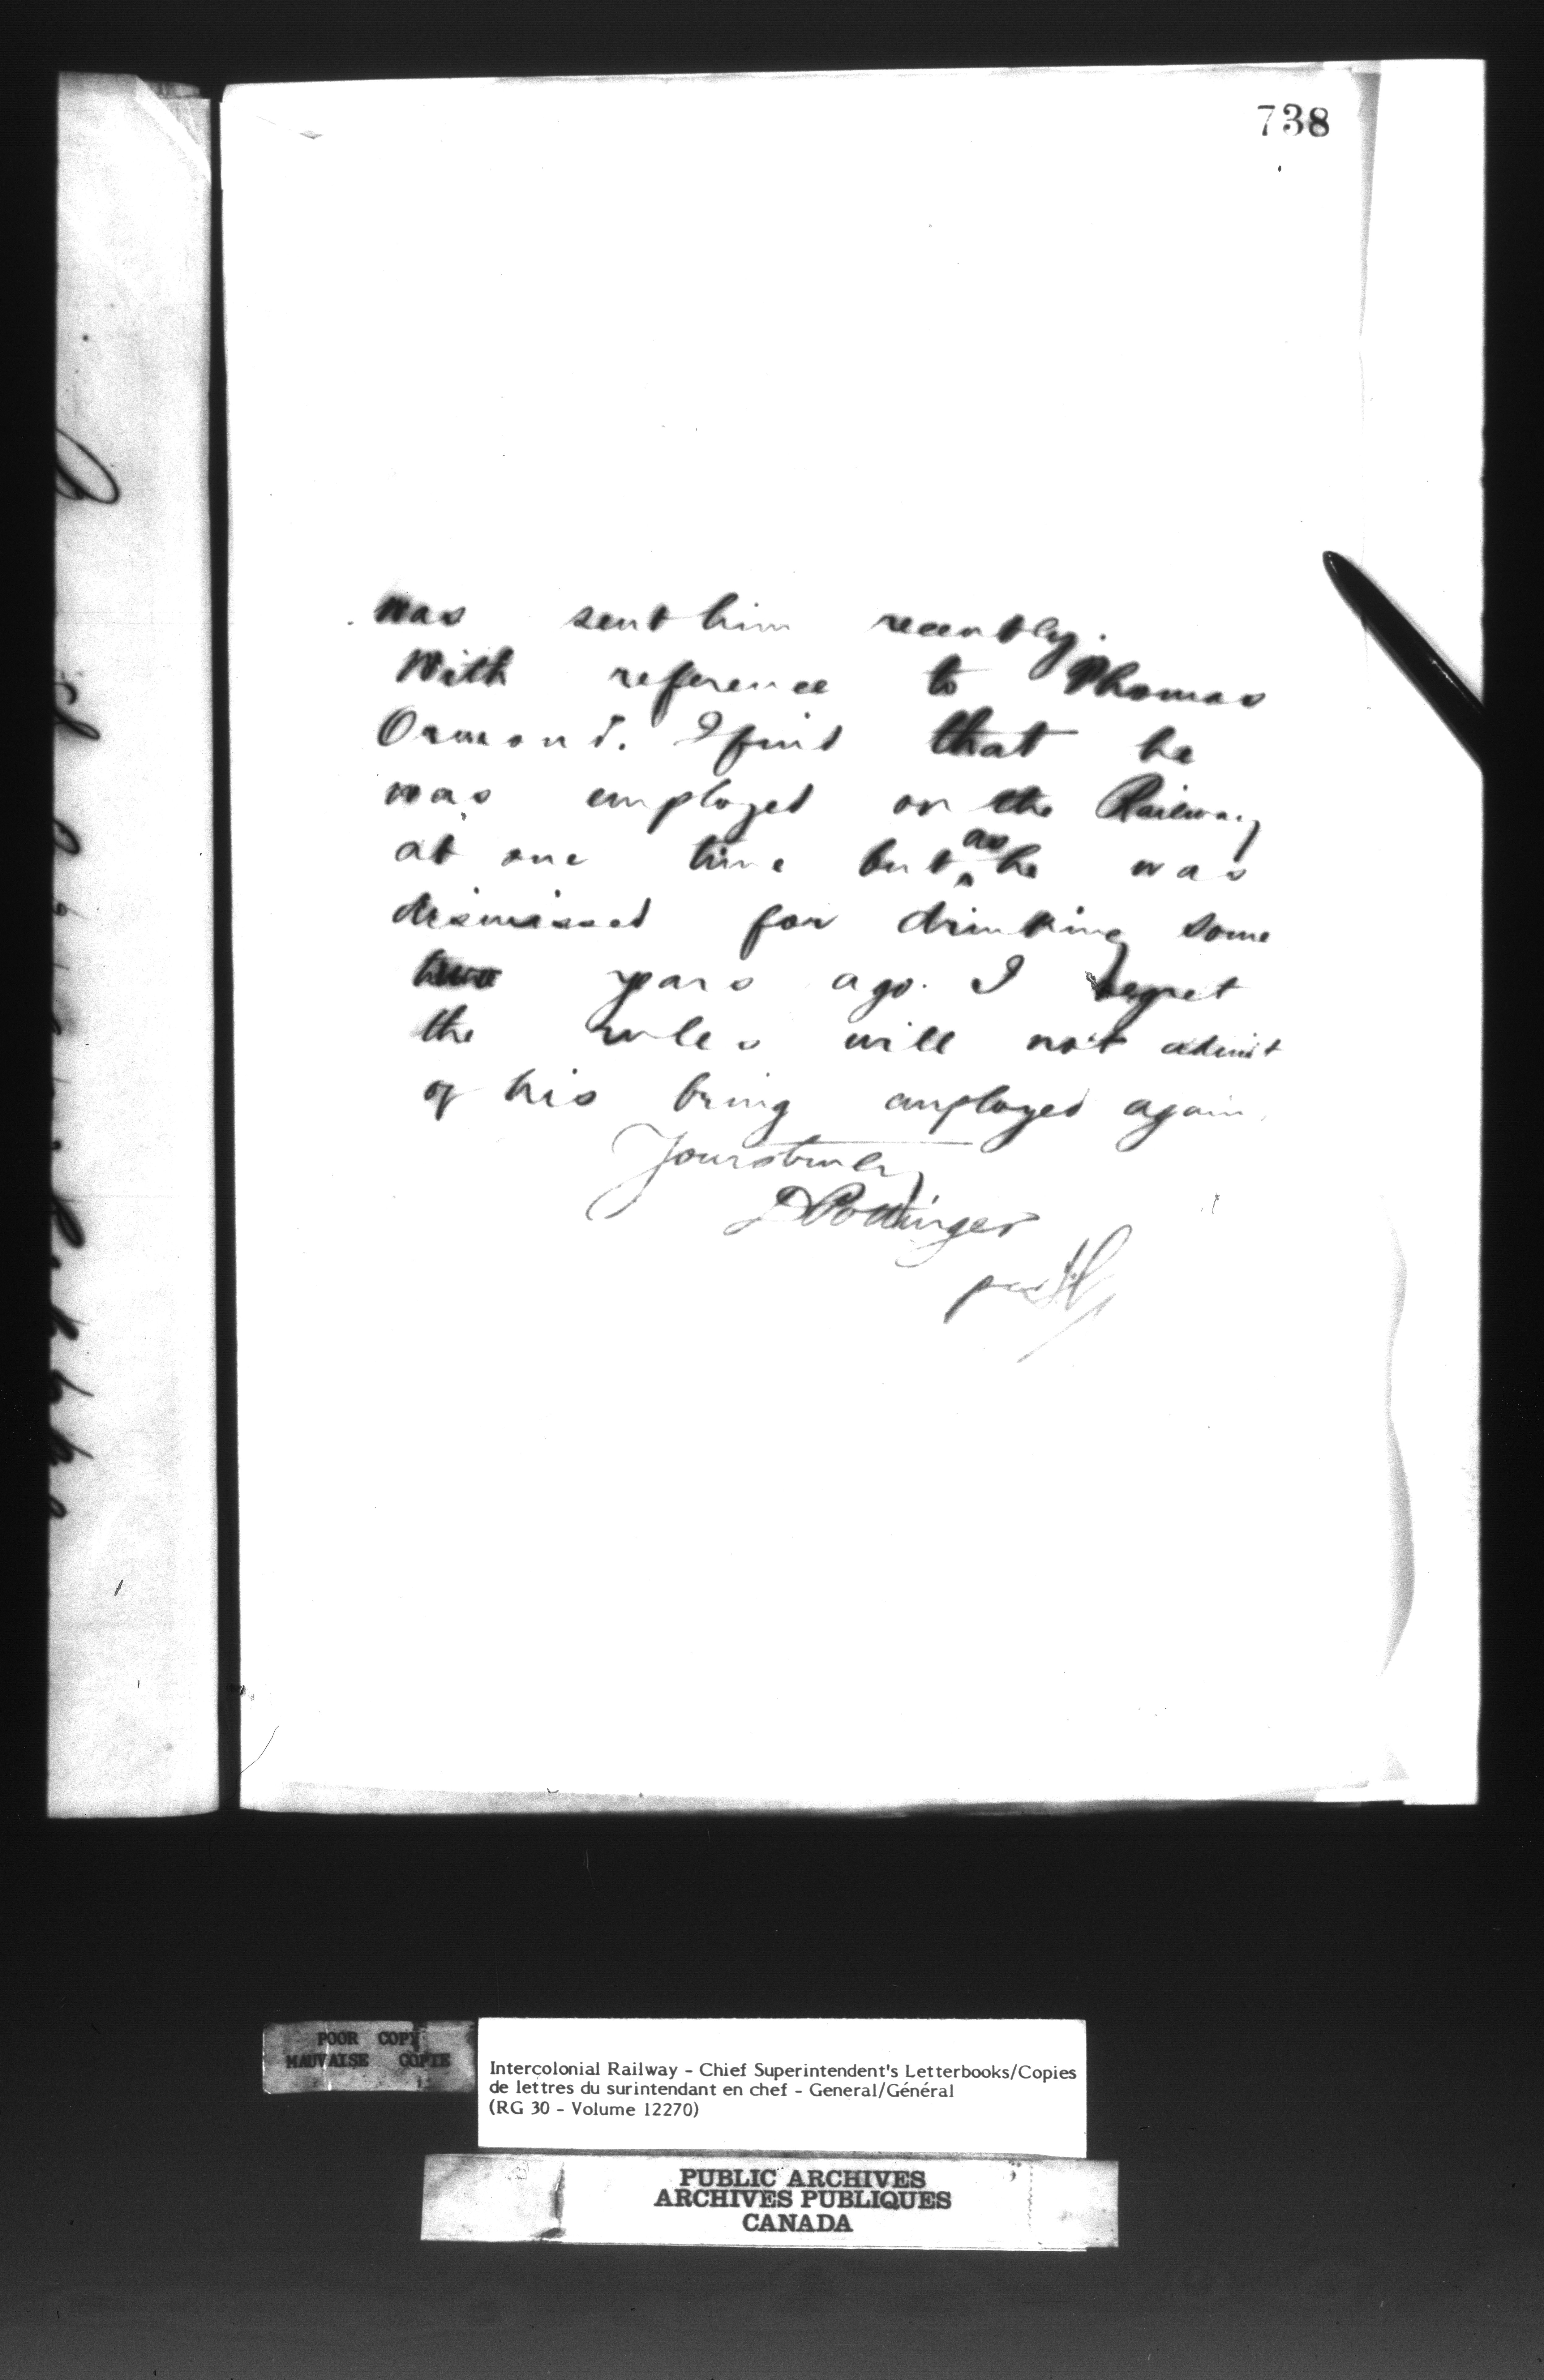 738
was sent him recently.
With reference to Thomas
Ormond. I find that he
was employed on the Railway
at one time but as he was
dismissed for drinking some
two years ago. I regret
the rules will not admit
of his being employed again.
Yours truly
D Pottinger
per
POOR COPY
MAUVAISE COPIE
Intercolonial Railway - Chief Superintendent's Letterbooks/Copies
de lettres du surintendant en chef - General/Général
(RG 30 - Volume 12270)
PUBLIC ARCHIVES
ARCHIVES PUBLIQUES
CANADA